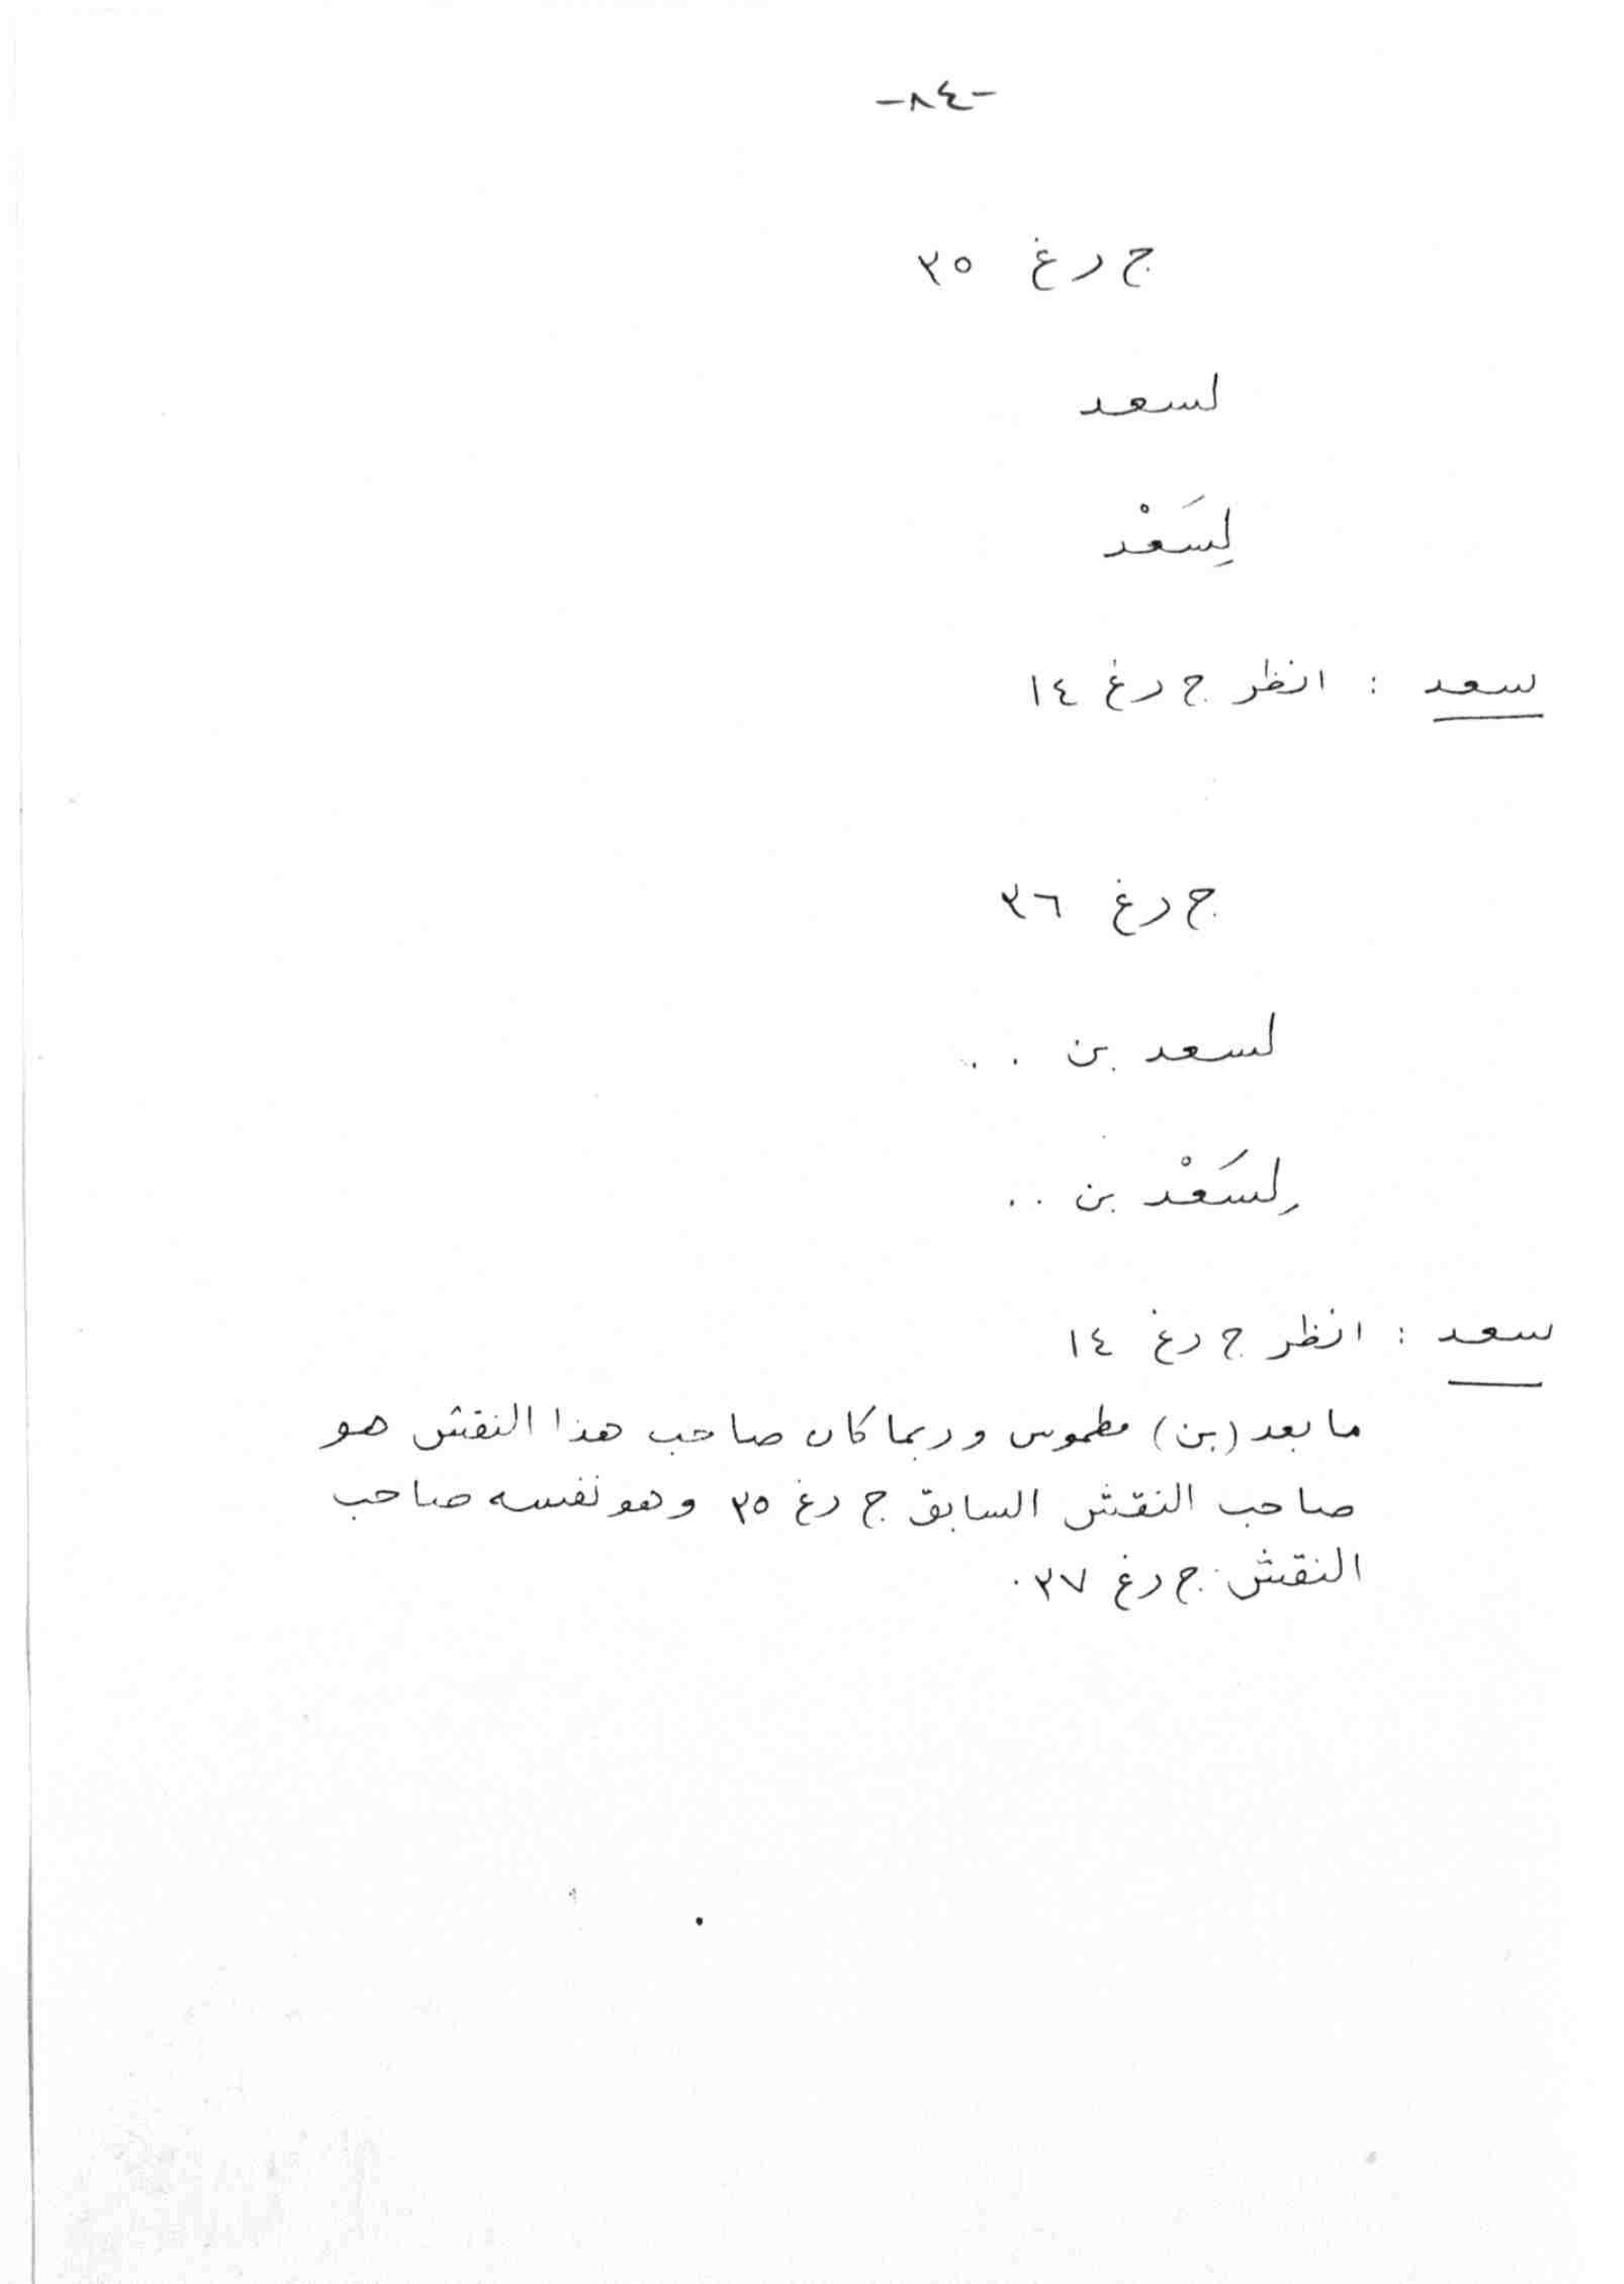 -٨٤-
ج رغ ٣٥
لسعد
لِسَعْد
سعد : انظر ج رغ ١٤
ج رغ ٣٦
لسعد بن . .
لِسَعْد بن . .
سعد : انظر ج رغ ١٤
ما بعد (بن) مطموس وربما كان صاحب هذا النقش هو
صاحب النقش السابق ج رغ ٣٥ وهو نفسه صاحب
النقش ج رغ ٣٧.